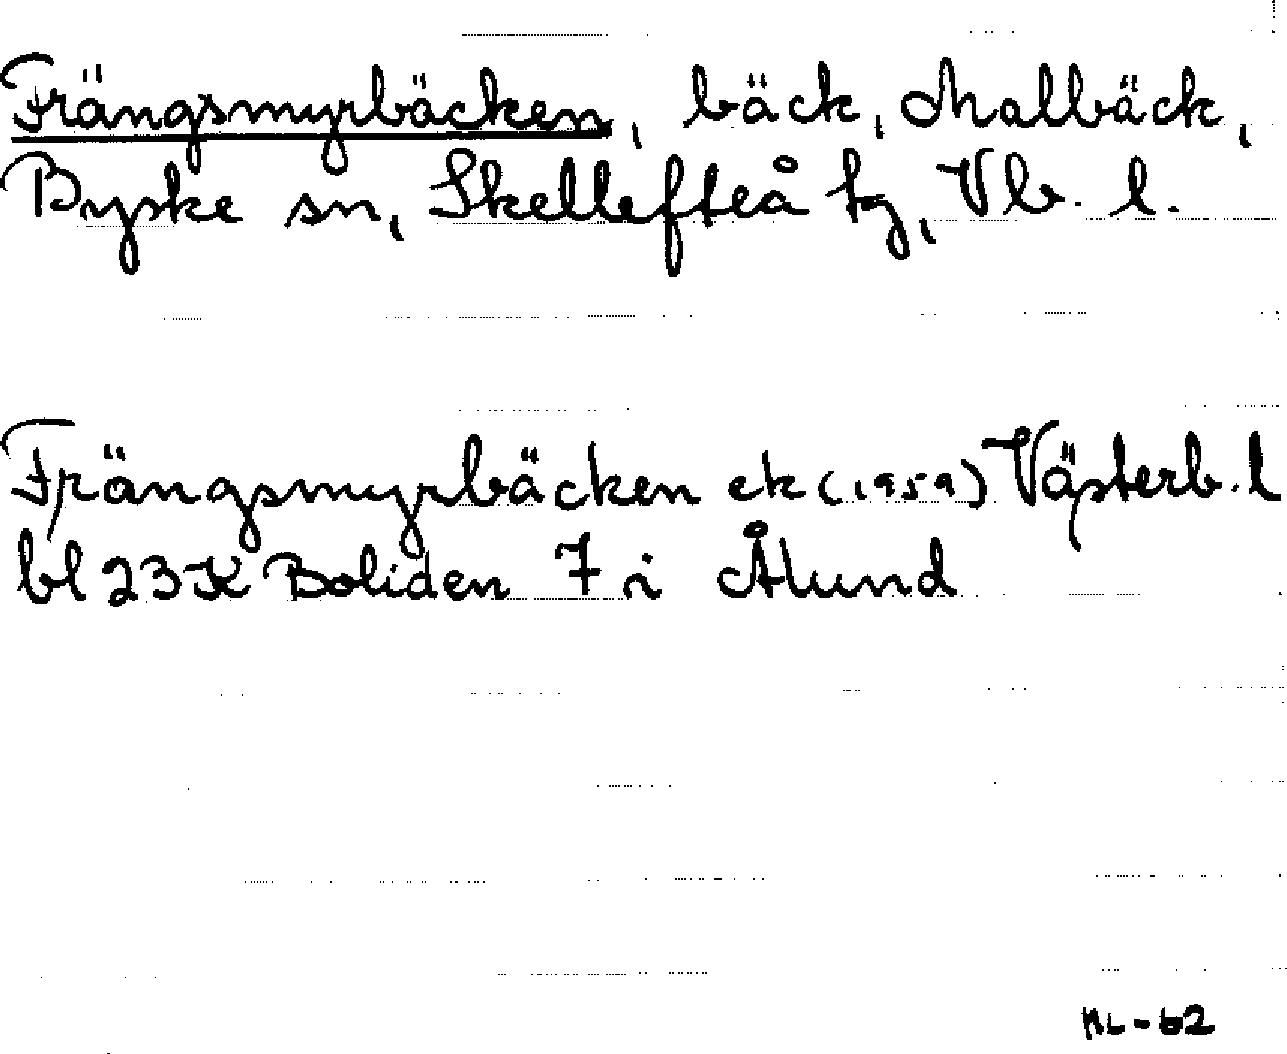 Frängsmyrbäcken, bäck, Malbäck,
Byske sn, Skellefteå tg, Vb. l.
Frängsmyrbäcken ek (1959) Västerb. l
bl 23 K Boliden 7 i Ålund
ML-62